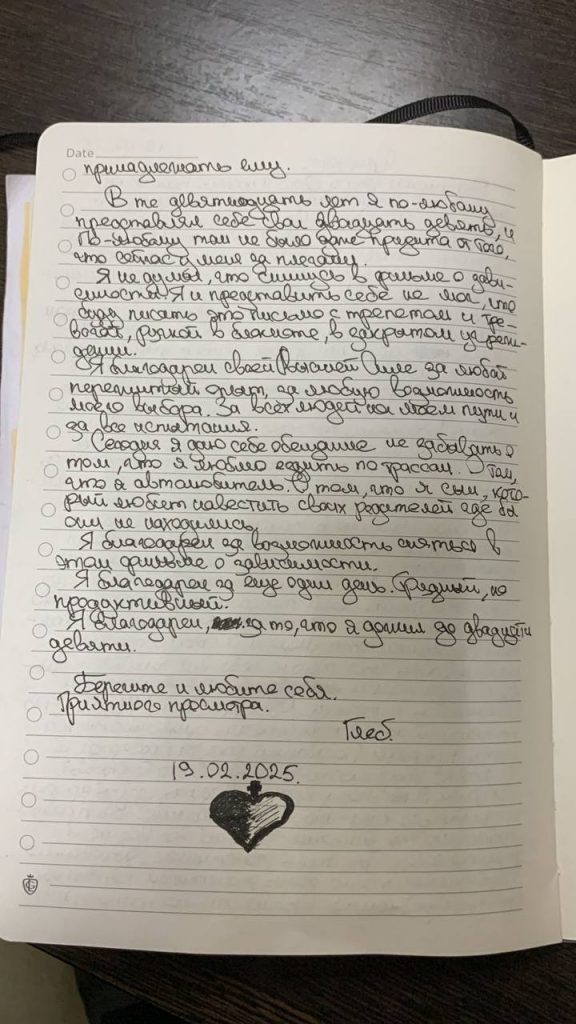 Date
принадлежать ему.
В те девятнадцать лет я по-любому
представлял себе свои двадцать девять, и
по-любому там не было даже кредита от того,
что сейчас у меня за плечами.
Я не думал, что снимусь в фильме о зави-
симости. Я и представить себе не мог, что
буду писать это письмо с трепетом и тре-
вогой, ручкой в блокноте, в закрытом учреж-
дении.
Я благодарен своей Высшей Силе за любой
пережитый опыт, за любую возможность
моего выбора. За всех людей на моём пути и
за все испытания.
Сегодня я даю себе обещание не забывать о
том, что я люблю ездить по трассам. О том,
что я автолюбитель. О том, что я сын, кото-
рый любит навестить своих родителей где бы
они не находились.
Я благодарен за возможность сняться в
этом фильме о зависимости.
Я благодарен за ещё один день. Средний, но
продуктивный.
Я благодарен, за то, что я дожил до двадцати
девяти.
Берегите и любите себя.
Приятного просмотра.
Глеб.
19.02.2025.